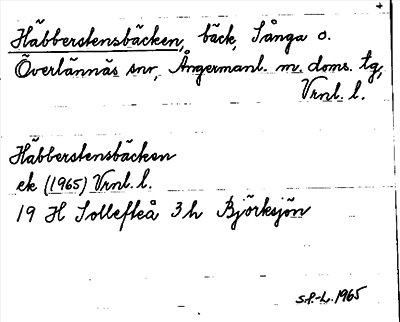 Häbberstensbäcken, bäck, Sånga o.
Överlännäs snr, Ångermanl. m. doms. tg,
Vrnl. l.
Häbberstensbäcken
ek (1965) Vrnl. l.
19 H Sollefteå 3h Björksjön
S.P.-L. 1965